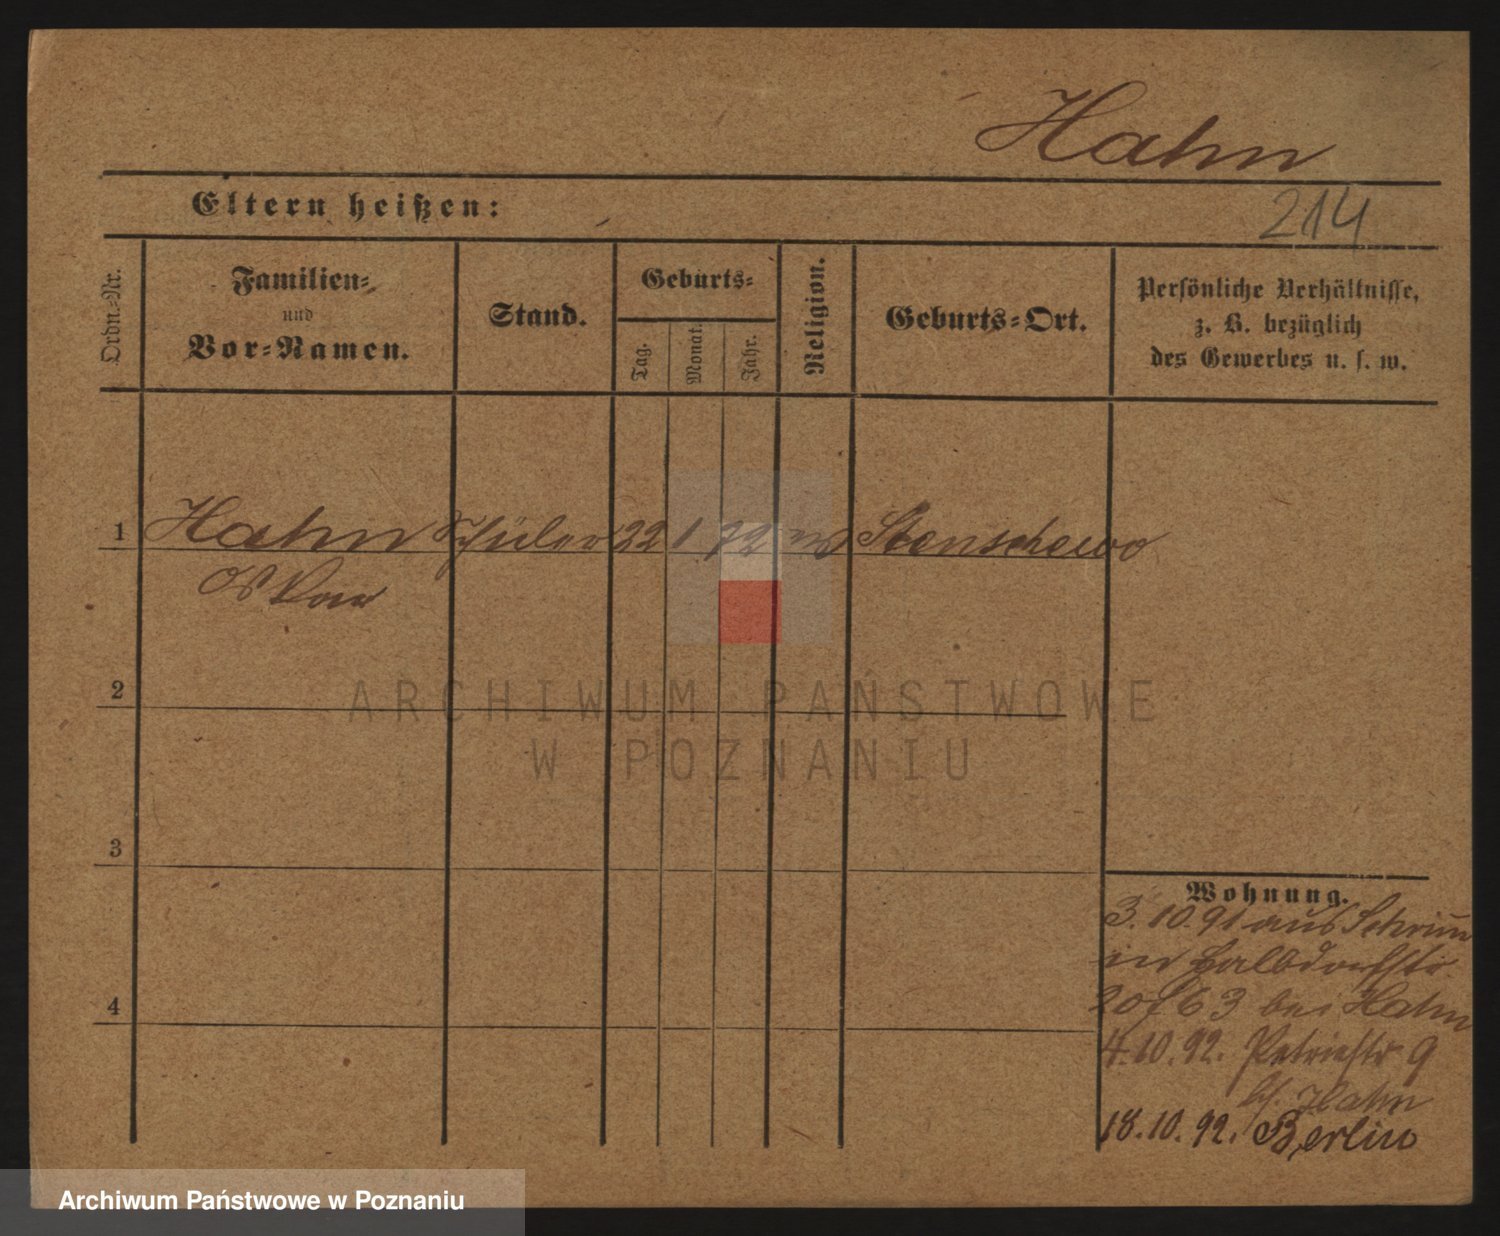 Hahn
Eltern heißen:
214
Ordn.-Nr.
Familien-
und
Vor-Namen.
Stand.
Geburts-
Tag.
Monat.
Jahr.
Religion.
Geburts-Ort.
Persönliche Verhältnisse,
z. B. bezüglich
des Gewerbes u. s. w.
1 Hahn Schüler 22 1 72 Stenschewo
Oskar
2
ARCHIWUM PAŃSTWOWE
W POZNANIU
3
Wohnung.
3. 10. 91 aus Schrimm
in Halbdorfstr.
20/63 bei Hahn
4. 10. 92. Petristr 9
bei Hahn
4
18. 10. 92. Berlin
Archiwum Państwowe w Poznaniu